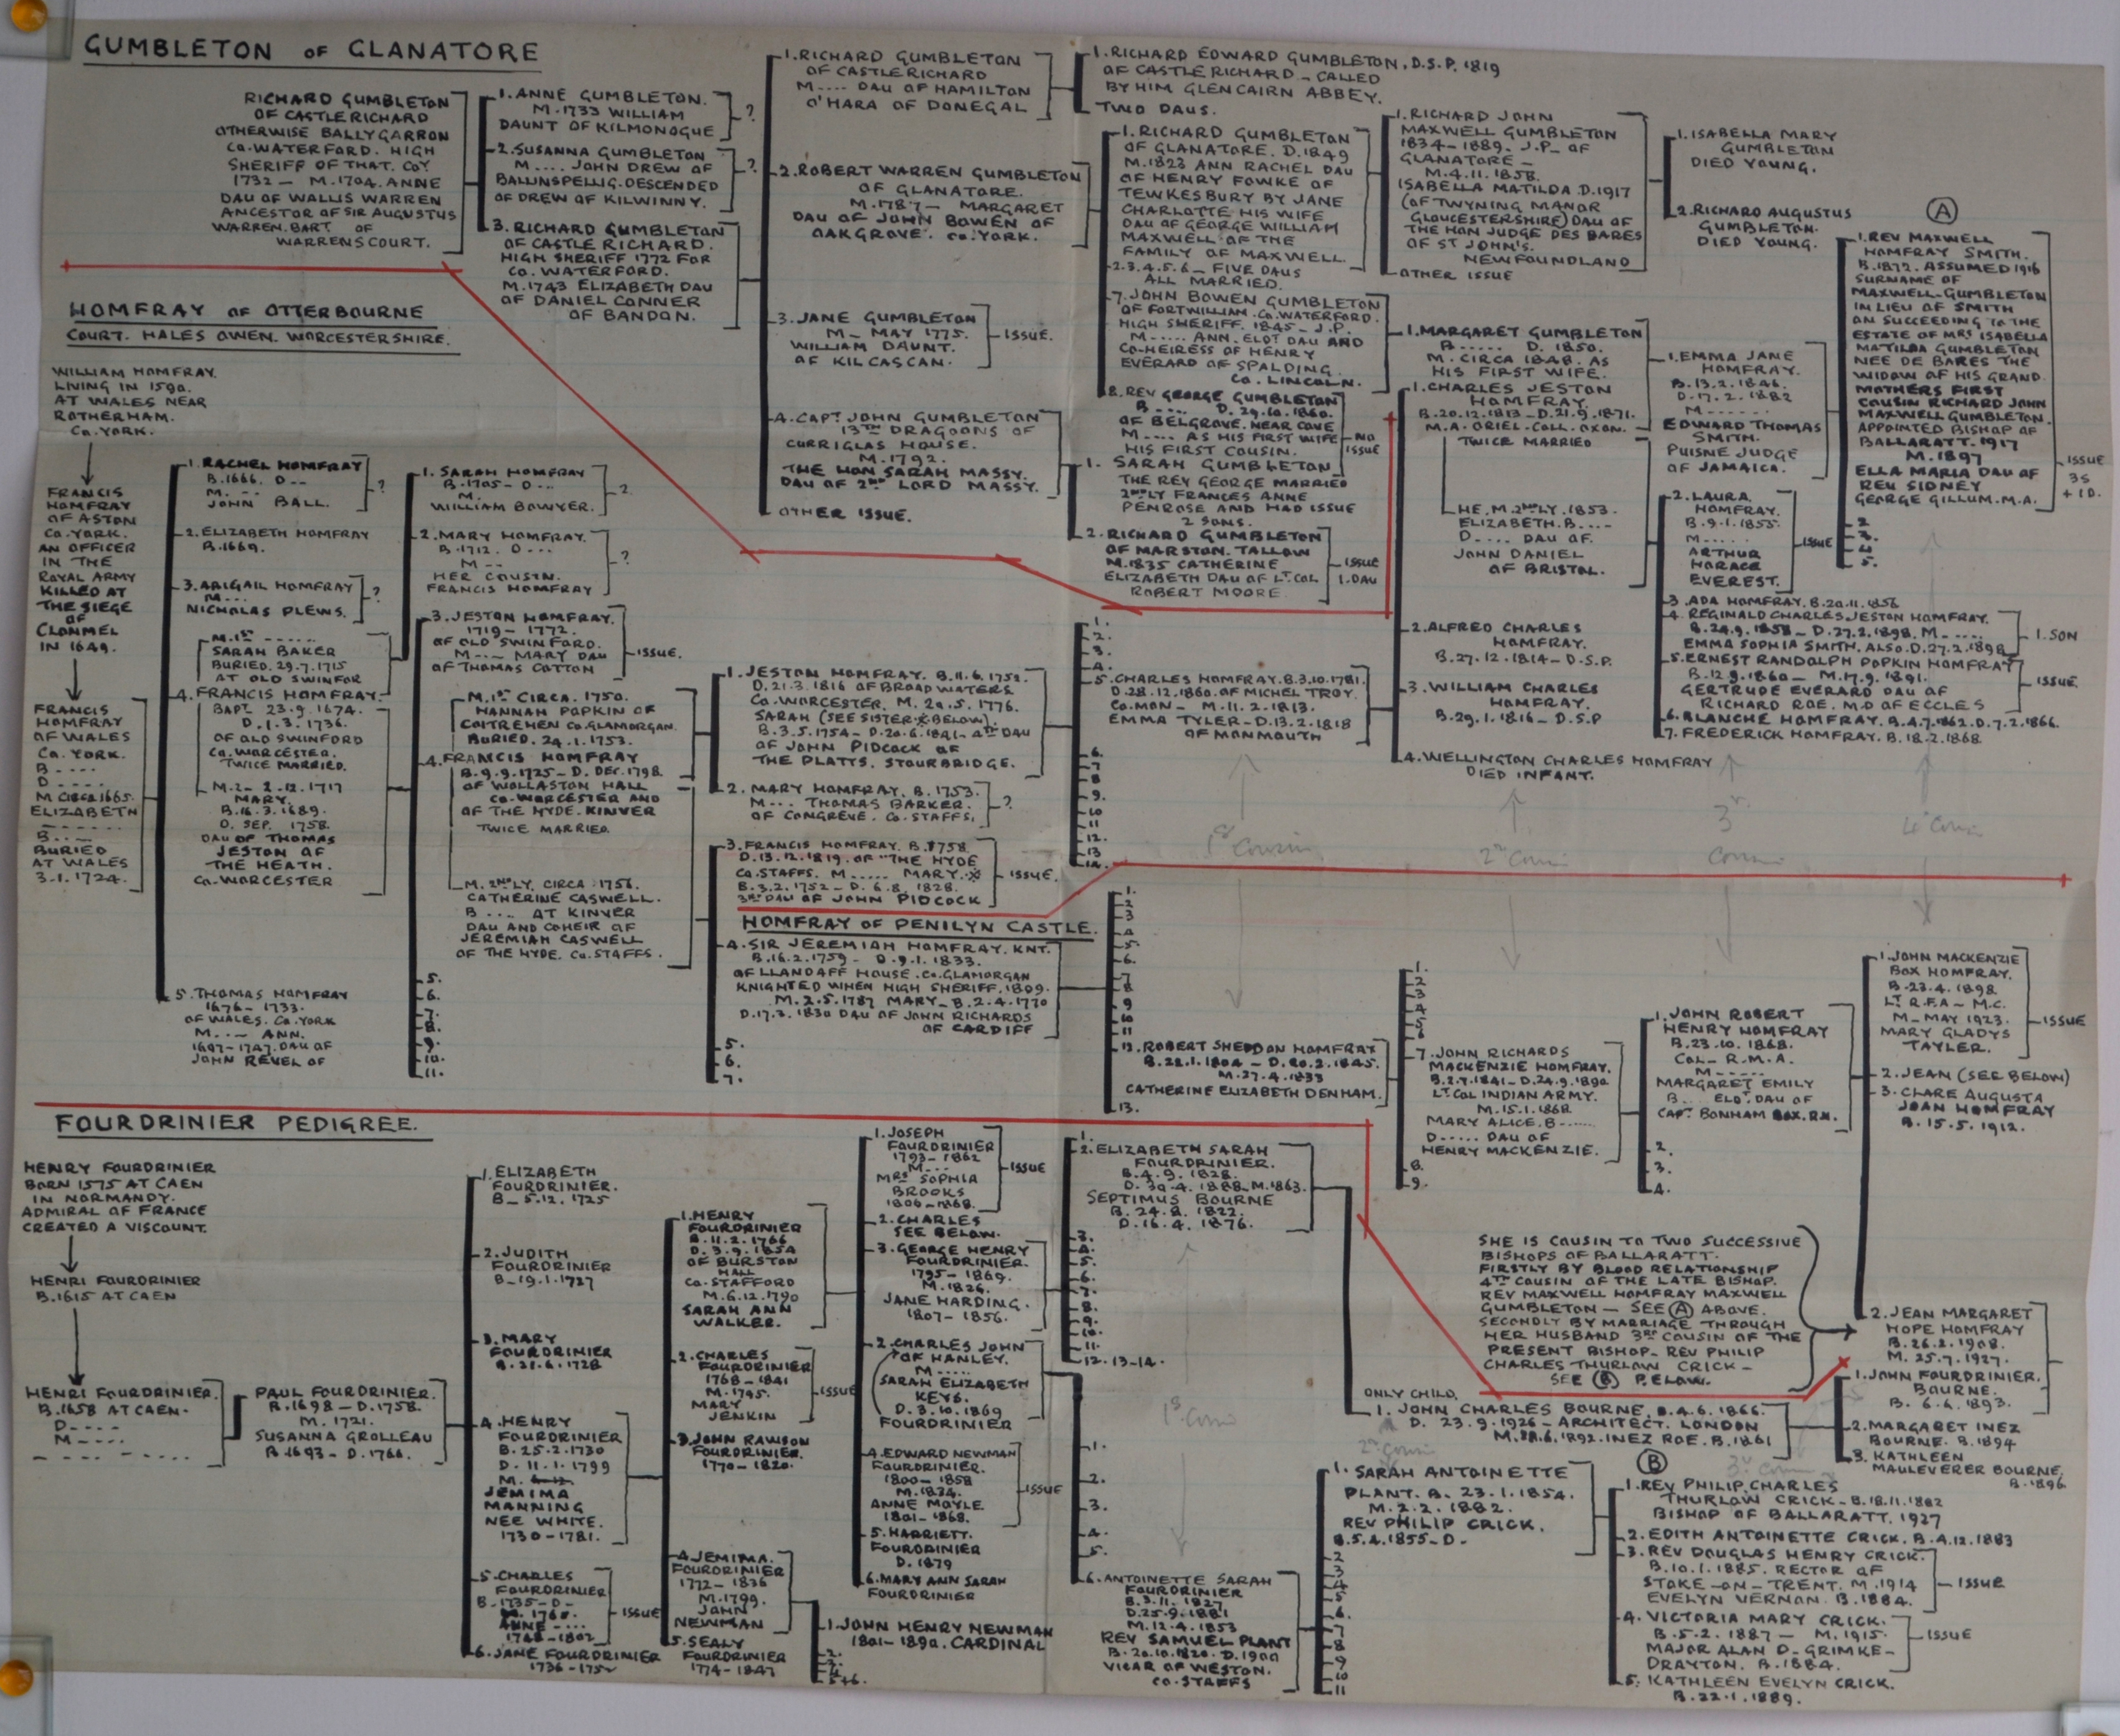 GUMBLETON OF GLANATORE
RICHARD GUMBLETON
OF CASTLE RICHARD
OTHERWISE BALLYGARRON
CO. WATERFORD. HIGH
SHERIFF OF THAT. COY
1732 — M.1704. ANNE
DAU OF WALLIS WARREN
ANCESTOR OF SIR AUGUSTUS
WARREN. BART. OF
WARRENSCOURT.
1. ANNE GUMBLETON.
M. 1733 WILLIAM
DAUNT OF KILMONOGUE
?
2. SUSANNA GUMBLETON
M .... JOHN DREW OF
BALLINSPELLIG. DESCENDED
OF DREW OF KILWINNY.
?
3. RICHARD GUMBLETON
OF CASTLE RICHARD.
HIGH SHERIFF 1772 FOR
CO. WATERFORD.
M.1743 ELIZABETH DAU
OF DANIEL CONNER
OF BANDON.
1. RICHARD GUMBLETON
OF CASTLERICHARD
M .... DAU OF HAMILTON
O'HARA OF DONEGAL
2. ROBERT WARREN GUMBLETON
OF GLANATORE.
M.1787 — MARGARET
DAU OF JOHN BOWEN OF
OAKGROVE. CO. YORK.
3. JANE GUMBLETON
M — MAY 1775.
WILLIAM DAUNT.
OF KILCASCAN.
ISSUE.
4. CAPT JOHN GUMBLETON
13TH DRAGOONS OF
CURRIGLAS HOUSE.
M.1792.
THE HON SARAH MASSY.
DAU OF 2ND LORD MASSY.
OTHER ISSUE.
1. RICHARD EDWARD GUMBLETON. D.S.P. 1819
OF CASTLE RICHARD — CALLED
BY HIM GLENCAIRN ABBEY.
TWO DAUS.
1. RICHARD GUMBLETON
OF GLANATORE. D.1849
M.1823 ANN RACHEL DAU
OF HENRY FOWKE OF
TEWKESBURY BY JANE
CHARLOTTE HIS WIFE
DAU OF GEORGE WILLIAM
MAXWELL OF THE
FAMILY OF MAXWELL.
2.3.4.5.6 — FIVE DAUS
ALL MARRIED.
7. JOHN BOWEN GUMBLETON
OF FORTWILLIAM. CO. WATERFORD.
HIGH SHERIFF. 1845 — J.P.
M ..... ANN. ELDT DAU AND
CO-HEIRESS OF HENRY
EVERARD OF SPALDING
CO. LINCOLN.
8. REV GEORGE GUMBLETON
B .... D. 29.10.1860.
OF BELGROVE. NEAR COVE
M .... AS HIS FIRST WIFE
HIS FIRST COUSIN.
NO
ISSUE
1. SARAH GUMBLETON
THE REV GEORGE MARRIED
2NDLY FRANCES ANNE
PENROSE AND HAD ISSUE
2 SONS.
2. RICHARD GUMBLETON
OF MARSTON. TALLOW
M.1835 CATHERINE
ELIZABETH DAU OF LT. COL
ROBERT MOORE.
ISSUE
1. DAU
1. RICHARD JOHN
MAXWELL GUMBLETON
1834 — 1889. J.P. OF
GLANATORE —
M.4.11.1858.
ISABELLA MATILDA D.1917
(OF TWYNING MANOR
GLOUCESTERSHIRE) DAU OF
THE HON JUDGE DES BARES
OF ST JOHN'S.
NEWFOUNDLAND
OTHER ISSUE
1. ISABELLA MARY
GUMBLETON
DIED YOUNG.
2. RICHARD AUGUSTUS
GUMBLETON.
DIED YOUNG.
1. MARGARET GUMBLETON
B ..... D. 1850.
M. CIRCA 1848. AS
HIS FIRST WIFE.
1. CHARLES JESTON
HOMFRAY.
B.20.12.1813 — D.21.9.1871.
M.A. ORIEL. COLL. OXON.
TWICE MARRIED
HE. M. 2NDLY. 1853.
ELIZABETH. B ....
D .... DAU OF.
JOHN DANIEL
OF BRISTOL.
2. ALFRED CHARLES
HOMFRAY.
B.27.12.1814 — D.S.P.
3. WILLIAM CHARLES
HOMFRAY.
B.29.1.1816 — D.S.P
4. WELLINGTON CHARLES HOMFRAY
DIED INFANT.
1. EMMA JANE
HOMFRAY.
B.13.2.1846.
D.17.2.1882
M ......
EDWARD THOMAS
SMITH.
PUISNE JUDGE
OF JAMAICA.
2. LAURA.
HOMFRAY.
B.9.1.1855.
M .....
ARTHUR
HORACE
EVEREST.
ISSUE
3. ADA HOMFRAY. B.20.11.1856
4. REGINALD CHARLES JESTON HOMFRAY.
B.24.9.1858 — D.27.2.1898. M — ....
EMMA SOPHIA SMITH. ALSO. D.27.2.1898
1. SON
5. ERNEST RANDOLPH POPKIN HOMFRAY
B.12.9.1860 — M.17.9.1891.
GERTRUDE EVERARD DAU OF
RICHARD ROE. M.D OF ECCLES
ISSUE.
6. BLANCHE HOMFRAY. B.4.7.1862. D.7.2.1866.
7. FREDERICK HOMFRAY. B.18.2.1868
A
1. REV MAXWELL
HOMFRAY SMITH.
B.1872. ASSUMED 1916
SURNAME OF
MAXWELL-GUMBLETON
IN LIEU OF SMITH
ON SUCCEEDING TO THE
ESTATE OF MRS ISABELLA
MATILDA GUMBLETON
NEE DE BARES THE
WIDOW OF HIS GRAND
MOTHERS FIRST
COUSIN RICHARD JOHN
MAXWELL GUMBLETON.
APPOINTED BISHOP OF
BALLARATT. 1917
M.1897
ELLA MARIA DAU OF
REV SIDNEY
GEORGE GILLUM. M.A.
ISSUE
3S
+ 1D.
2
3.
4
5.
HOMFRAY OF OTTERBOURNE
COURT. HALES OWEN. WORCESTERSHIRE.
WILLIAM HOMFRAY.
LIVING IN 1590.
AT WALES NEAR
ROTHERHAM.
CO. YORK.
FRANCIS
HOMFRAY
OF ASTON
CO. YORK.
AN OFFICER
IN THE
ROYAL ARMY
KILLED AT
THE SIEGE
OF
CLONMEL
IN 1649.
FRANCIS
HOMFRAY
OF WALES
CO. YORK.
B ....
D ....
M CIRCA 1665.
ELIZABETH
B ....
BURIED
AT WALES
3.1.1724.
1. RACHEL HOMFRAY
B.1666. D --
M. --
JOHN BALL.
?
2. ELIZABETH HOMFRAY
B.1669.
3. ABIGAIL HOMFRAY
M ...
NICHOLAS PLEWS.
?
M.1ST ......
SARAH BAKER
BURIED. 29.7.1715
AT OLD SWINFOR
4. FRANCIS HOMFRAY.
BAPT. 23.9.1674.
D.1.3.1736.
OF OLD SWINFORD
CO. WORCESTER.
TWICE MARRIED.
M.2 — 2.12.1717
MARY.
B.16.3.1689.
D. SEP. 1758.
DAU OF THOMAS
JESTON OF
THE HEATH.
CO. WORCESTER
5. THOMAS HOMFRAY
1676 — 1733.
OF WALES. CO. YORK
M. -- ANN.
1697-1747. DAU OF
JOHN REVEL OF
1. SARAH HOMFRAY
B.1705 — D ...
M.
WILLIAM BOWYER.
?
2. MARY HOMFRAY.
B.1712. D ---
M --
HER COUSIN.
FRANCIS HOMFRAY
?
3. JESTON HOMFRAY.
1719 — 1772.
OF OLD SWINFORD.
M --- MARY DAU
OF THOMAS COTTON
ISSUE.
M.1ST CIRCA. 1750.
HANNAH POPKIN OF
COITREHEN CO. GLAMORGAN.
BURIED. 24.1.1753.
4. FRANCIS HOMFRAY
B.9.9.1725 — D. DEC. 1798.
OF WOLLASTON HALL
CO. WORCESTER AND
OF THE HYDE. KINVER
TWICE MARRIED.
M. 2NDLY. CIRCA 1756.
CATHERINE CASWELL.
B .... AT KINVER
DAU AND COHEIR OF
JEREMIAH CASWELL
OF THE HYDE. CO. STAFFS.
5.
6.
7.
8.
9.
10.
11.
1. JESTON HOMFRAY. B.11.6.1752.
D.21.3.1816 OF BROADWATERS
CO. WORCESTER. M. 20.5.1776.
SARAH (SEE SISTER ※ BELOW).
B.3.5.1754 — D.20.6.1841 — 4TH DAU
OF JOHN PIDCOCK OF
THE PLATTS. STOURBRIDGE.
2. MARY HOMFRAY. B.1753.
M --- THOMAS BARKER.
OF CONGREVE. CO. STAFFS.
?
3. FRANCIS HOMFRAY. B.1758
D.13.12.1819. OF "THE HYDE
CO. STAFFS. M ..... MARY. ※
B.3.2.1752 — D.6.8.1828.
3RD DAU OF JOHN PIDCOCK
ISSUE.
HOMFRAY OF PENILYN CASTLE.
4. SIR JEREMIAH HOMFRAY. KNT.
B.16.2.1759 — D.9.1.1833.
OF LLANDAFF HOUSE. CO. GLAMORGAN
KNIGHTED WHEN HIGH SHERIFF. 1809.
M.2.5.1787 MARY — B.2.4.1770
D.17.3.1830 DAU OF JOHN RICHARDS
OF CARDIFF
5.
6.
7.
1.
2.
3.
4.
5. CHARLES HOMFRAY. B.3.10.1781.
D.28.12.1860. OF MICHEL TROY.
CO. MON — M.11.2.1813.
EMMA TYLER — D.13.2.1818
OF MONMOUTH
6.
7
8
9.
10
11
12.
13
14.
1st Cousin
2nd Cousin
3r
Cousin
4th Cousin
1.
2
3
4
5.
6.
7
8
9
10
11
12. ROBERT SHEDDON HOMFRAY
B.22.1.1804 — D.20.2.1845.
M.27.4.1833
CATHERINE ELIZABETH DENHAM.
13.
1.
2
3
4
5
6
7. JOHN RICHARDS
MACKENZIE HOMFRAY.
B.2.7.1841 — D.24.9.1890
LT. COL INDIAN ARMY.
M.15.1.1868
MARY ALICE. B ......
D ..... DAU OF
HENRY MACKENZIE.
8.
9.
1. JOHN ROBERT
HENRY HOMFRAY
B.23.10.1868.
COL — R.M.A.
M -----
MARGARET EMILY
B ... ELDT. DAU OF
CAPT. BONHAM BOX. R.N.
2.
3.
4.
1. JOHN MACKENZIE
BOX HOMFRAY.
B.23.4.1898
LT R.F.A — M.C.
M — MAY 1923.
MARY GLADYS
TAYLER.
ISSUE
2. JEAN (SEE BELOW)
3. CLARE AUGUSTA
JOAN HOMFRAY
B.15.5.1912.
FOURDRINIER PEDIGREE.
HENRY FOURDRINIER
BORN 1575 AT CAEN
IN NORMANDY.
ADMIRAL OF FRANCE
CREATED A VISCOUNT.
HENRI FOURDRINIER
B.1615 AT CAEN
HENRI FOURDRINIER.
B.1658 AT CAEN.
D ----
M ----
PAUL FOURDRINIER.
B.1698 — D.1758.
M. 1721.
SUSANNA GROLLEAU
B.1693 — D.1766.
1. ELIZABETH
FOURDRINIER.
B — 5.12.1725
2. JUDITH
FOURDRINIER
B — 19.1.1727
3. MARY
FOURDRINIER
B.21.6.1728
4. HENRY
FOURDRINIER
B.25.2.1730
D.11.1.1799
M.
JEMIMA
MANNING
NEE WHITE.
1730 — 1781.
5. CHARLES
FOURDRINIER
B.1735 — D —
M. 1765.
ANNE ----
1748 — 1802
ISSUE
6. JANE FOURDRINIER
1736 — 1752
1. HENRY
FOURDRINIER
B.11.2.1766
D.3.9.1854
OF BURSTON
HALL
CO. STAFFORD
M.6.12.1790
SARAH ANN
WALKER.
2. CHARLES
FOURDRINIER
1768 — 1841
M.1795.
MARY
JENKIN
ISSUE
3. JOHN RAWSON
FOURDRINIER.
1770 — 1820.
4. JEMIMA.
FOURDRINIER
1772 — 1836
M.1799.
JOHN
NEWMAN
5. SEALY
FOURDRINIER
1774 — 1847
1. JOHN HENRY NEWMAN
1801 — 1890. CARDINAL
2.
3.
4
5+6.
1. JOSEPH
FOURDRINIER
1793 — 1862
M ---
MRS SOPHIA
BROOKS
1806 — 1868.
ISSUE
2. CHARLES
SEE BELOW.
3. GEORGE HENRY
FOURDRINIER.
1795 — 1869.
M.1826.
JANE HARDING.
1807 — 1856.
2. CHARLES JOHN
OF HANLEY.
M ....
SARAH ELIZABETH
KEYS.
D.3.10.1869
FOURDRINIER
4. EDWARD NEWMAN
FOURDRINIER.
1800 — 1858
M.1834.
ANNE MOYLE
1801 — 1868.
ISSUE
5. HARRIETT.
FOURDRINIER
D.1879
6. MARY ANN SARAH
FOURDRINIER
1.
2. ELIZABETH SARAH
FOURDRINIER.
B.4.9.1828.
D.30.4.1888. M.1863.
SEPTIMUS BOURNE
B.24.8.1822.
D.16.4.1876.
3.
4.
5.
6.
7.
8.
9.
10.
11.
12. 13-14.
1st Cousin
1.
2.
3.
4.
5.
6. ANTOINETTE SARAH
FOURDRINIER
B.3.11.1827
D.25.9.1881
M.12.4.1853
REV SAMUEL PLANT
B.20.10.1820. D.1900
VICAR OF WESTON.
CO. STAFFS
ONLY CHILD.
1. JOHN CHARLES BOURNE. B.4.6.1866.
D. 23.9.1926 — ARCHITECT. LONDON
M.22.6.1892. INEZ ROE. B.1861
2nd Cousin
3r Cousin
1. SARAH ANTOINETTE
PLANT. B. 23.1.1854.
M.2.2.1882.
REV PHILIP CRICK.
B.5.4.1855 — D —
2
3
4
5
6.
7
8
9
10
11
SHE IS COUSIN TO TWO SUCCESSIVE
BISHOPS OF BALLARATT.
FIRSTLY BY BLOOD RELATIONSHIP
4TH COUSIN OF THE LATE BISHOP.
REV MAXWELL HOMFRAY MAXWELL
GUMBLETON — SEE A ABOVE.
SECONDLY BY MARRIAGE THROUGH
HER HUSBAND 3RD COUSIN OF THE
PRESENT BISHOP — REV PHILIP
CHARLES THURLOW CRICK —
SEE B BELOW.
2. JEAN MARGARET
HOPE HOMFRAY
B.26.2.1908.
M.25.7.1927.
1. JOHN FOURDRINIER.
BOURNE.
B. 6.6.1893.
2. MARGARET INEZ
BOURNE. B.1894
3. KATHLEEN
MAULEVERER BOURNE.
B.1896.
B
1. REV PHILIP CHARLES
THURLOW CRICK — B.18.11.1882
BISHOP OF BALLARATT. 1927
2. EDITH ANTOINETTE CRICK. B.4.12.1883
3. REV DOUGLAS HENRY CRICK.
B.10.1.1885. RECTOR OF
STOKE-ON-TRENT. M.1914
EVELYN VERNON. B.1884.
ISSUE
4. VICTORIA MARY CRICK.
B.5.2.1887 — M.1915.
MAJOR ALAN D. GRIMKE-
DRAYTON. B.1884.
ISSUE
5. KATHLEEN EVELYN CRICK.
B.22.1.1889.